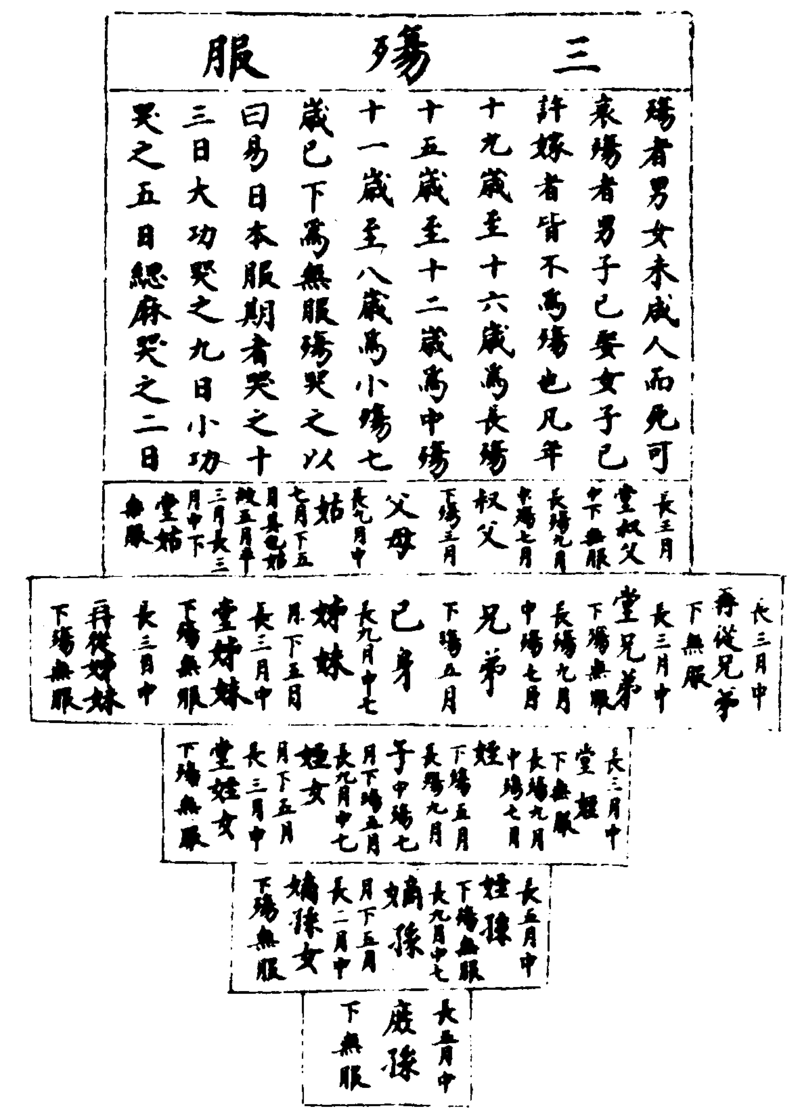 三殤服
殤者男女未成人而死可
哀殤者男子已娶女子已
許嫁者皆不為殤也凡年
十九歲至十六歲為長殤
十五歲至十二歲為中殤
十一歲至八歲為小殤七
歲已下為無服殤哭之以
日易日本服期者哭之十
三日大功哭之九日小功
哭之五日緦麻哭之二日
長三月
堂叔父
中下無服
長殤九月
中殤七月
叔父
下殤三月
父母
長九月中
姑
七月下五
月其也姑
三月長三
月中下
堂姑
無服
長三月中
再從兄弟
下無服
長三月中
堂兄弟
下殤無服
長殤九月
中殤七月
兄弟
下殤五月
己身
長九月中七
姊妹
月下五月
長三月中
堂姊妹
下殤無服
長三月中
再從姊妹
下殤無服
長三月中
堂姪
下無服
長殤九月
中殤七月
姪
下殤五月
長殤九月
子中殤七
月下殤五月
長九月中七
姪女
月下五月
長三月中
堂姪女
下殤無服
長五月中
姪孫
下殤無服
長九月中七
嫡孫
月下五月
長二月中
嫡孫女
下殤無服
長五月中
庶孫
下無服